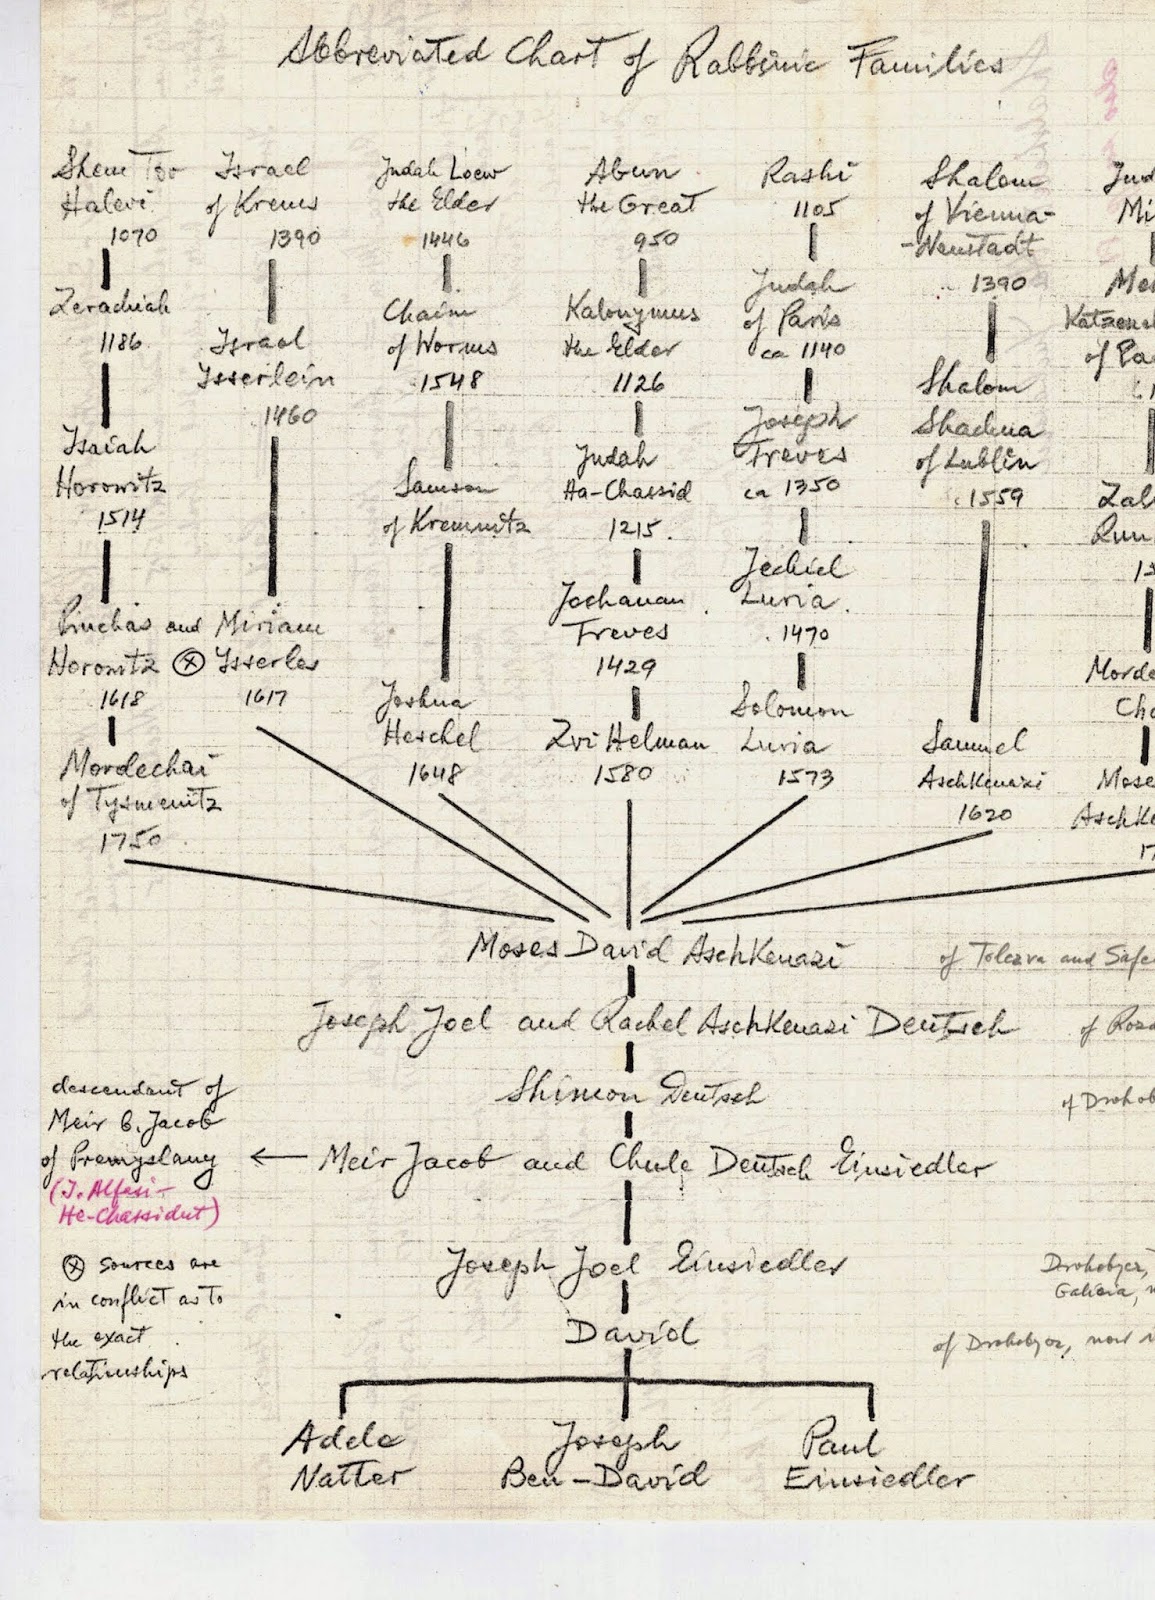 Abbreviated Chart of Rabbinic Families
Shem Tov
Halevi
1070
Zerachiah
1186
Isaiah
Horowitz
1514
Pinchas and
Horowitz ⊗
1618
Mordechai
of Tysmenitz
1750
Israel
of Krems
1390
Israel
Isserlein
1460
Miriam
Isserles
1617
Judah Loew
the Elder
1446
Chaim
of Worms
1548
Samson
of Kremnitz
Joshua
Heschel
1648
Abun
the Great
950
Kalonymus
the Elder
1126
Judah
Ha-Chassid
1215
Jochanan
Treves
1429
Zvi Helman
1580
Rashi
1105
Judah
of Paris
ca 1140
Joseph
Treves
ca 1350
Jechiel
Luria
1470
Solomon
Luria
1573
Shalom
of Vienna-
-Neustadt
1390
Shalom
Shachna
of Lublin
1559
Samuel
Aschkenazi
1620
Jud
Mi
Me
Katzenel
of Pa
Zal
Run
Morde
Cha
Mose
Aschke
17
Moses David Aschkenazi of Tolczva and Safe
Joseph Joel and Rachel Aschkenazi Deutsch of Roz
Shimon Deutsch of Drohob
Meir Jacob and Chule Deutsch Einsiedler
descendant of
Meir b. Jacob
of Premyslany
(J. Alfasi-
He-Chassidut)
Joseph Joel Einsiedler Drohobycz,
Galicia,
David of Drohobycz, now
⊗ sources are
in conflict as to
the exact
relationships
Adele
Natter
Joseph
Ben-David
Paul
Einsiedler